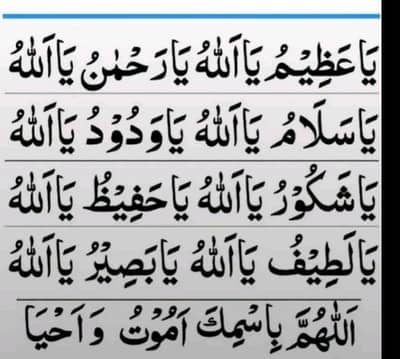 يَا عَظِيْمُ يَا اَللهُ يَا رَحْمٰنُ يَا اَللهُ
يَا سَلَامُ يَا اَللهُ يَا وَدُوْدُ يَا اَللهُ
يَا شَكُوْرُ يَا اَللهُ يَا حَفِيْظُ يَا اَللهُ
يَا لَطِيْفُ يَا اَللهُ يَا بَصِيْرُ يَا اَللهُ
اَللّٰهُمَّ بِاسْمِكَ اَمُوْتُ وَ اَحْيَا